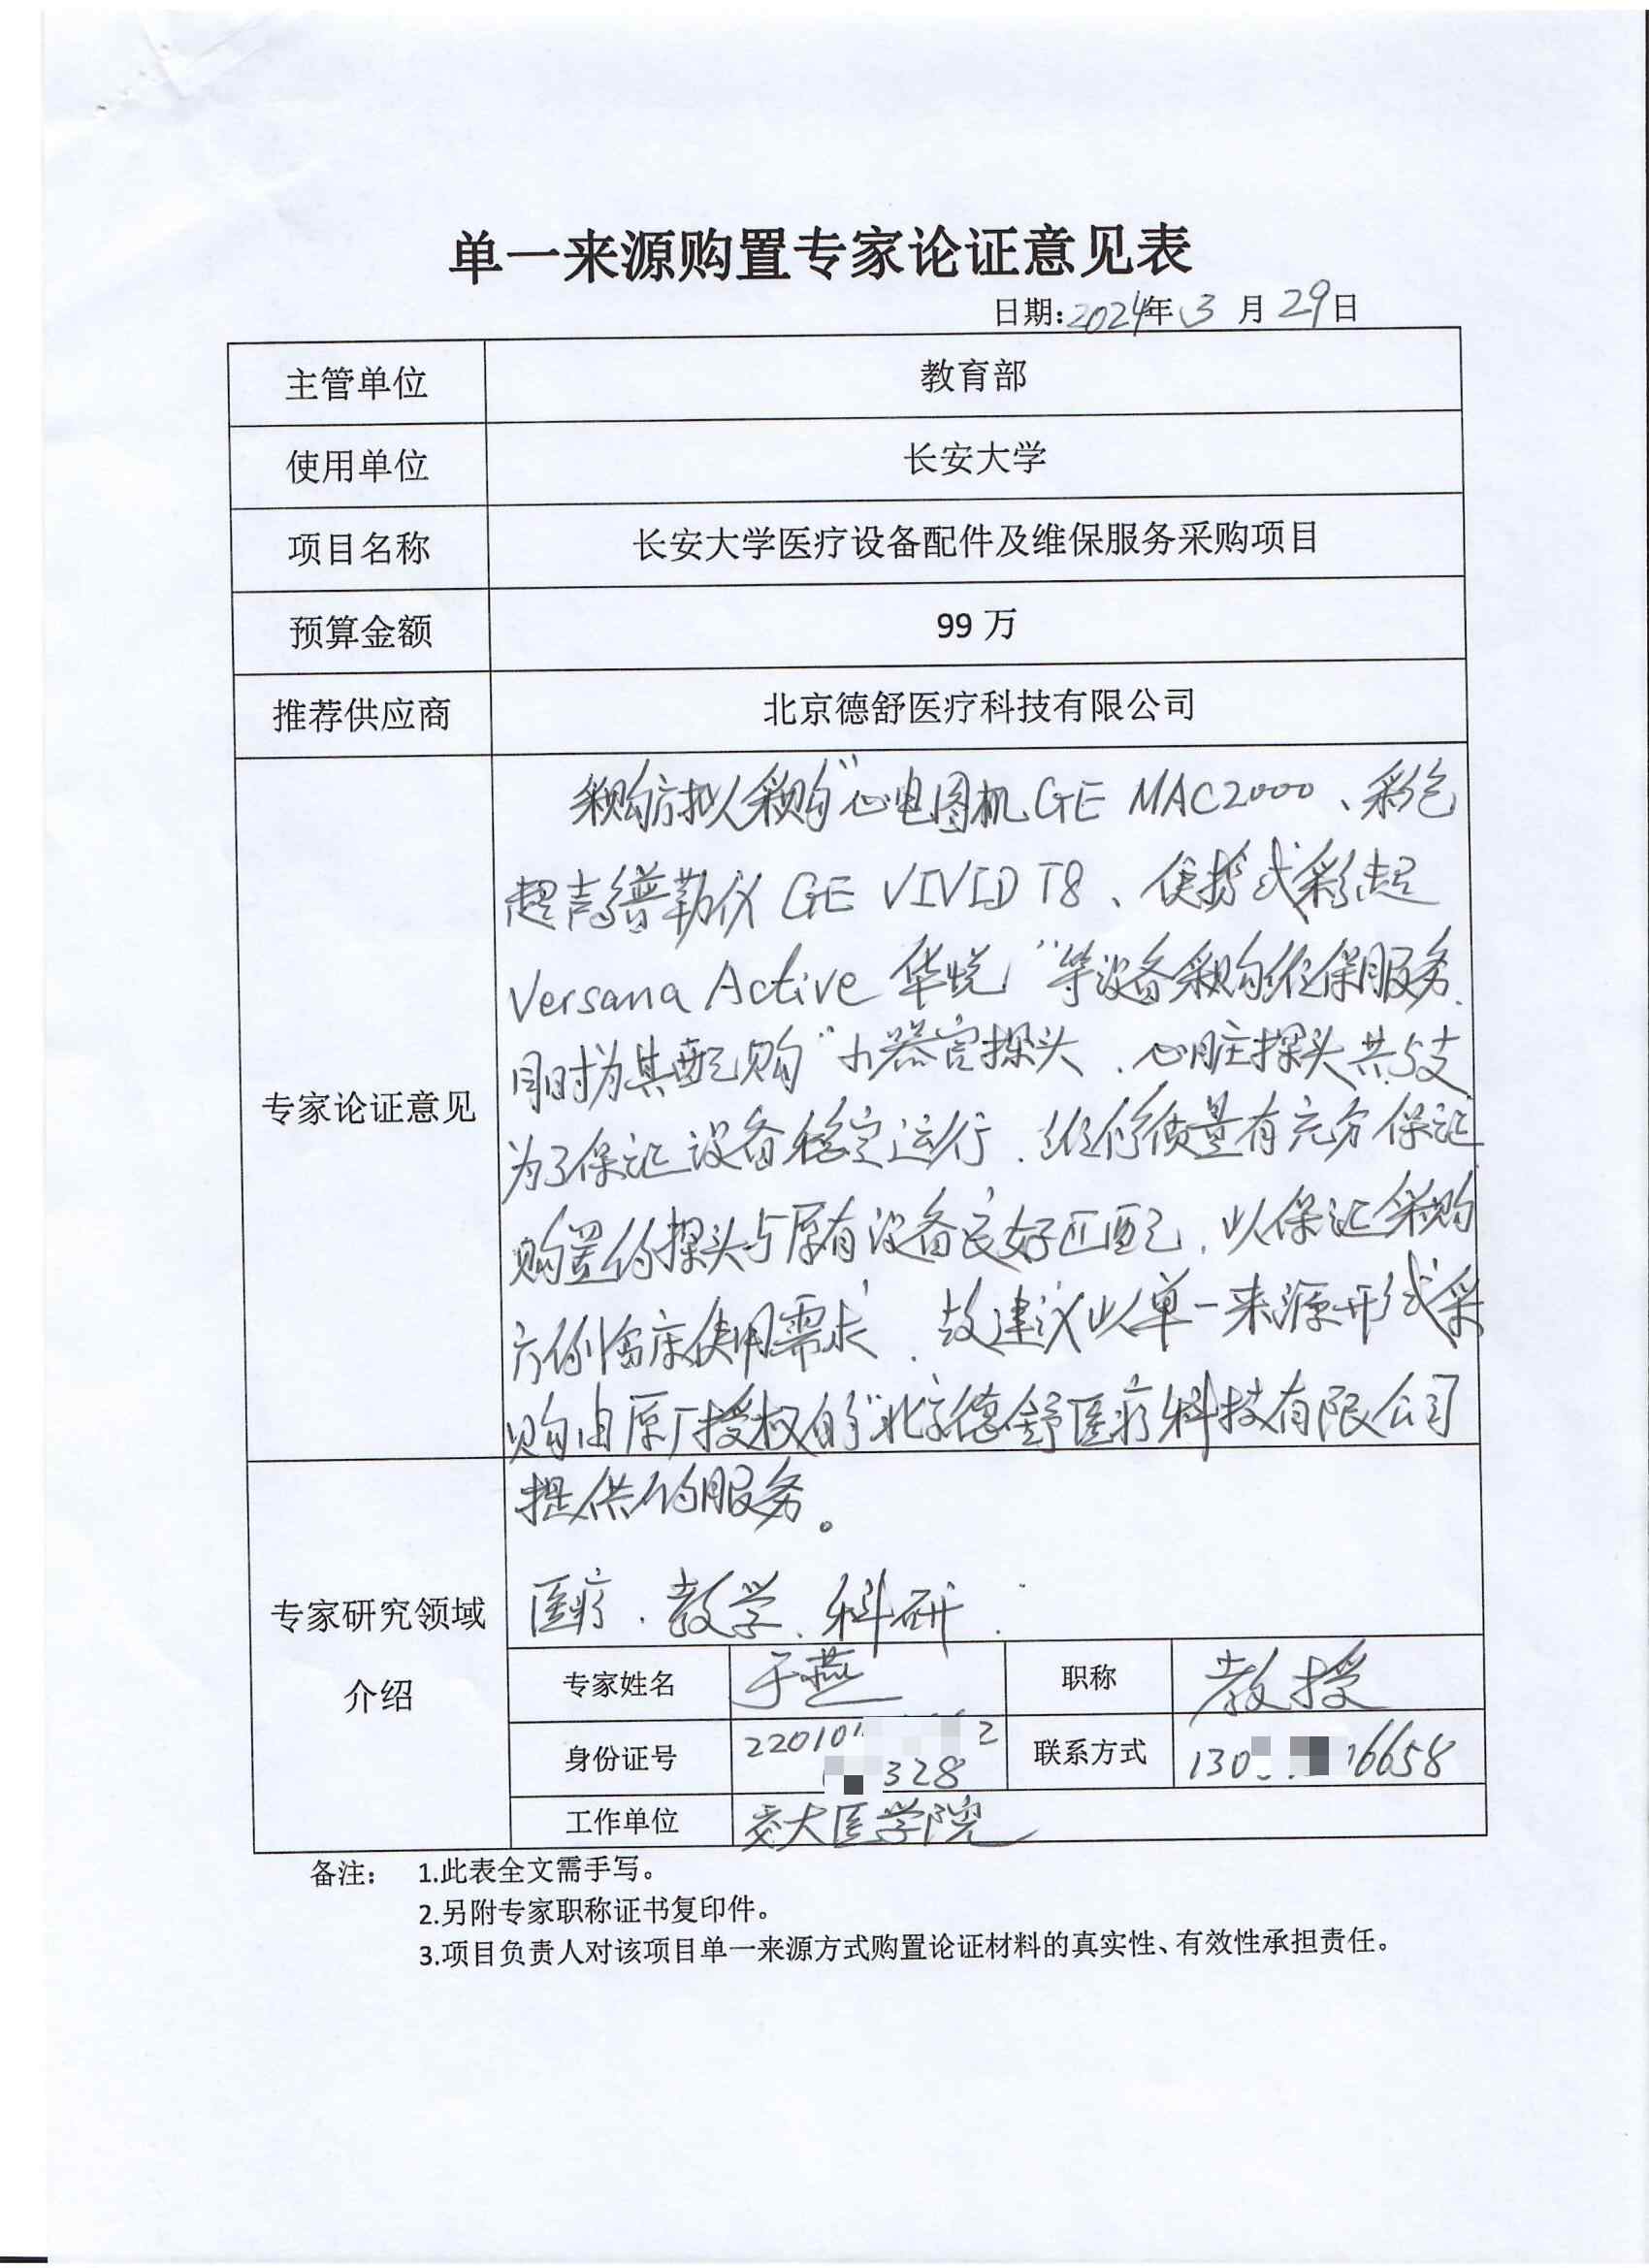 单一来源购置专家论证意见表
日期:2024年3月29日
主管单位 教育部
使用单位 长安大学
项目名称 长安大学医疗设备配件及维保服务采购项目
预算金额 99万
推荐供应商 北京德舒医疗科技有限公司
专家论证意见
采购方拟采购“心电图机GE MAC2000、彩色
超声普勒仪 GE VIVID T8、便携式彩超
Versana Active 华悦”等设备采购维保服务.
同时为其配购“小器官探头、心脏探头共5支
为了保证设备稳定运行.维修质量有充分保证
购置的探头与原有设备良好匹配.以保证采购
方的临床使用需求.故建议以单一来源形式采
购由原厂授权的“北京德舒医疗科技有限公司
提供的服务。
专家研究领域
介绍
医疗.教学.科研.
专家姓名 于燕 职称 教授
身份证号 22010 2
328 联系方式 130 6658
工作单位 交大医学院
备注: 1.此表全文需手写。
2.另附专家职称证书复印件。
3.项目负责人对该项目单一来源方式购置论证材料的真实性、有效性承担责任。